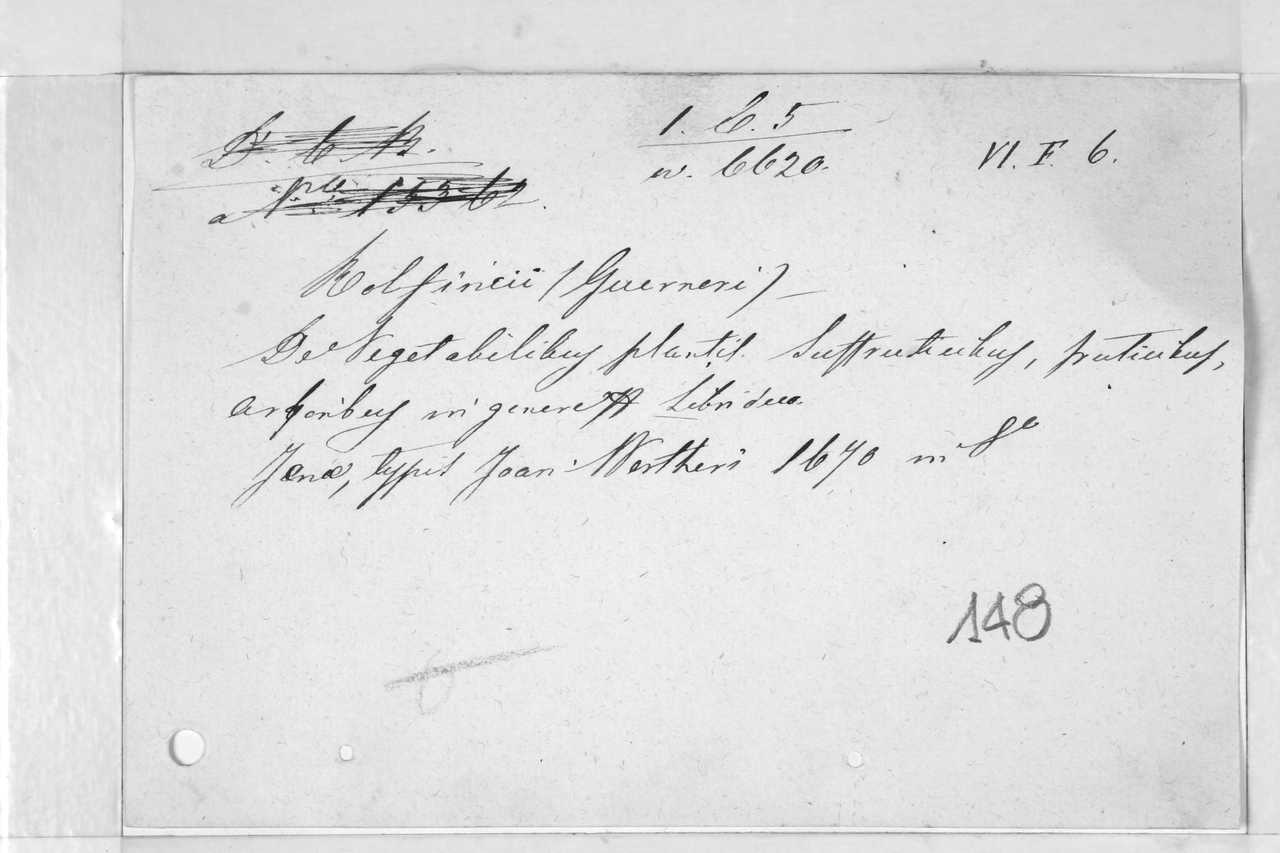 1. C. 5
VI. F. 6.
n. 6620.
Rolfincii (Guerneri)
De Vegetabilibus plantis Suffruticibus, fruticibus,
arboribus in genere Libri duo.
Jenæ, typis Joan: Wertheri 1670 in 8º
148